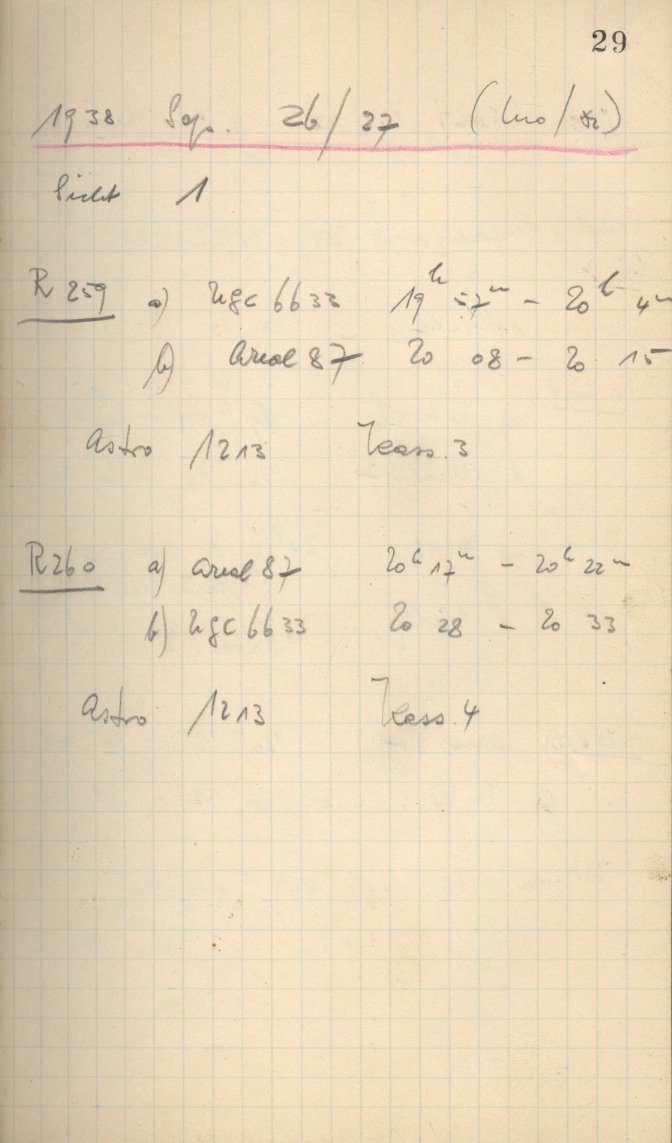 29
1938 Sep. 26/27 (Mo/Di)
Sicht 1
R 259 a) NGC 6633 19h 57m - 20h 4m
b) Areal 87 20 08 - 20 15
Astro 1213 Kass. 3
R 260 a) Areal 87 20h 17m - 20h 22m
b) NGC 6633 20 28 - 20 33
Astro 1213 Kass. 4